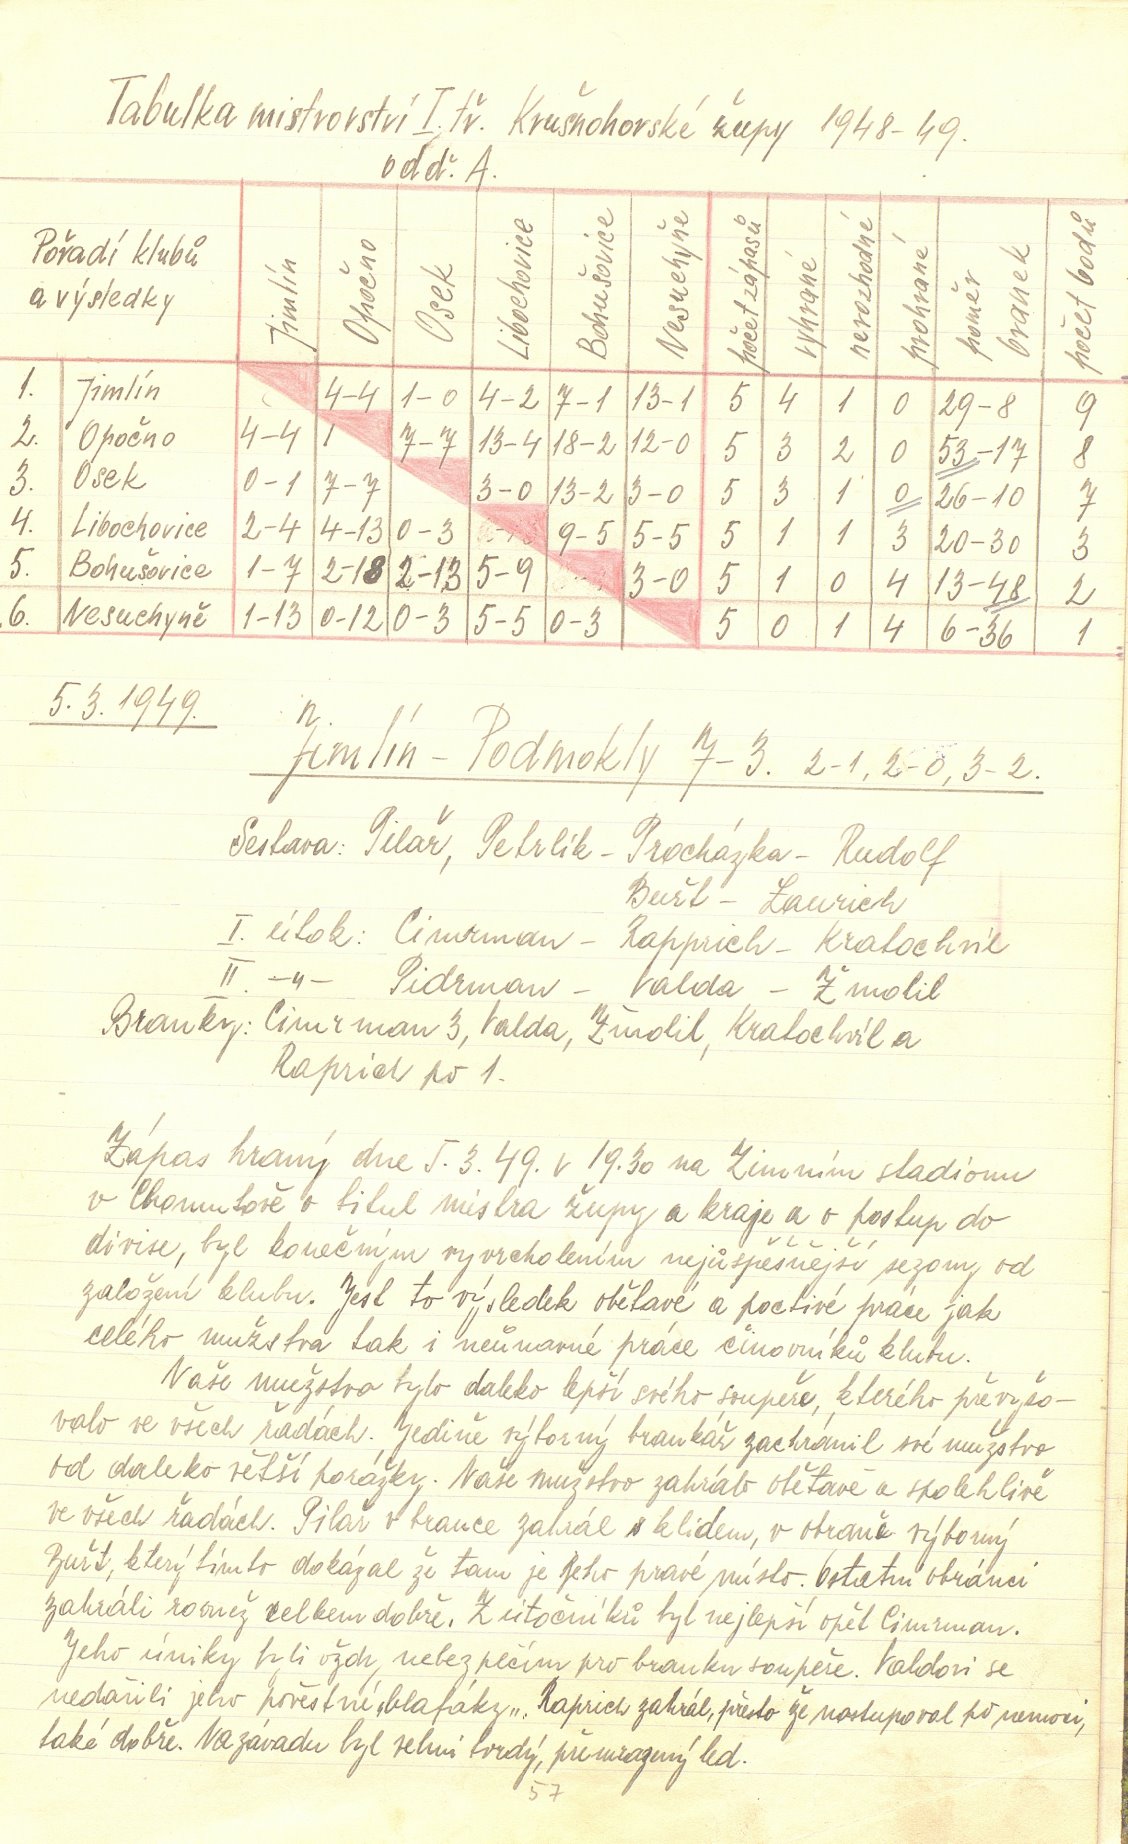 Tabulka mistrovství I. tř. Krušnohorské župy 1948-49.
odd. A.
Pořadí klubů a výsledky | Jimlín | Opočno | Osek | Libochovice | Bohušovice | Nesuchyňe | počet zápasů | vyhrané | nerozhodné | prohrané | poměr branek | počet bodů
1. Jimlín | | 4-4 | 1-0 | 4-2 | 7-1 | 13-1 | 5 | 4 | 1 | 0 | 29-8 | 9
2. Opočno | 4-4 | | 7-7 | 13-4 | 18-2 | 12-0 | 5 | 3 | 2 | 0 | 53-17 | 8
3. Osek | 0-1 | 7-7 | | 3-0 | 13-2 | 3-0 | 5 | 3 | 1 | 0 | 26-10 | 7
4. Libochovice | 2-4 | 4-13 | 0-3 | | 9-5 | 5-5 | 5 | 1 | 1 | 3 | 20-30 | 3
5. Bohušovice | 1-7 | 2-18 | 2-13 | 5-9 | | 3-0 | 5 | 1 | 0 | 4 | 13-48 | 2
6. Nesuchyně | 1-13 | 0-12 | 0-3 | 5-5 | 0-3 | | 5 | 0 | 1 | 4 | 6-36 | 1
5.3.1949.
n.
Jimlín - Podmokly 7-3. 2-1, 2-0, 3-2.
Sestava: Pilař, Petrlík - Procházka - Rudolf
Buřt - Laurich
I. útok: Cimrman - Rapprich - Kratochvíl
II. -"- Pidrman - Valda - Žmolil
Branky: Cimrman 3, Valda, Žmolil, Kratochvíl a
Raprich po 1.
Zápas hraný dne 5.3.49. v 19.30 na Zimním stadionu
v Chomutově o titul mistra župy a kraje a o postup do
divise, byl konečným vyvrcholením nejúspěšnější sezony od
založení klubu. Jest to výsledek obětavé a poctivé práce jak
celého mužstva tak i neúnavné práce činovníků klubu.
Naše mužstvo bylo daleko lepší svého soupeře, kterého převyšo-
valo ve všech řadách. Jedině výborný brankář zachránil své mužstvo
od daleko větší porážky. Naše mužstvo zahrálo obětavě a spolehlivě
ve všech řadách. Pilař v brance zahrál s klidem, v obraně výborný
Buřt, který tímto dokázal že tam je jeho pravé místo. Ostatní obránci
zahráli rovněž celkem dobře. Z útočníků byl nejlepší opět Cimrman.
Jeho úniky byli vždy nebezpečím pro branku soupeře. Valdovi se
nedařili jeho pověstné „blafáky". Raprich zahrál, přesto že nastupoval po nemoci,
také dobře. Na závadu byl velmi tvrdý, přemrazený led.
57